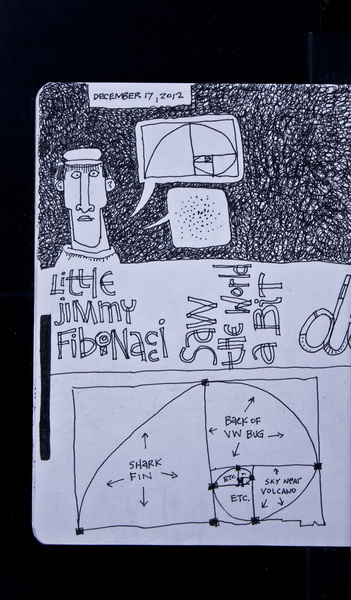 DECEMBER 17, 2012
Little
Jimmy
Fibonaci
Saw
the World
a Bit
di
SHARK
FIN
BACK OF
VW BUG
ETC.
ETC.
SKY NEAR
VOLCANO